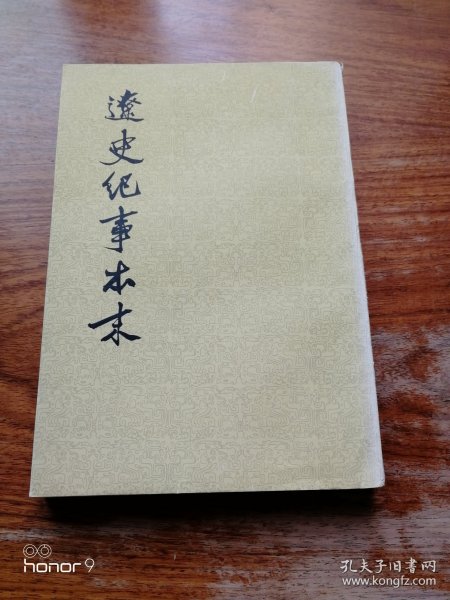 遼史纪事本末
honor 9
孔夫子旧书网
www.kongfz.com